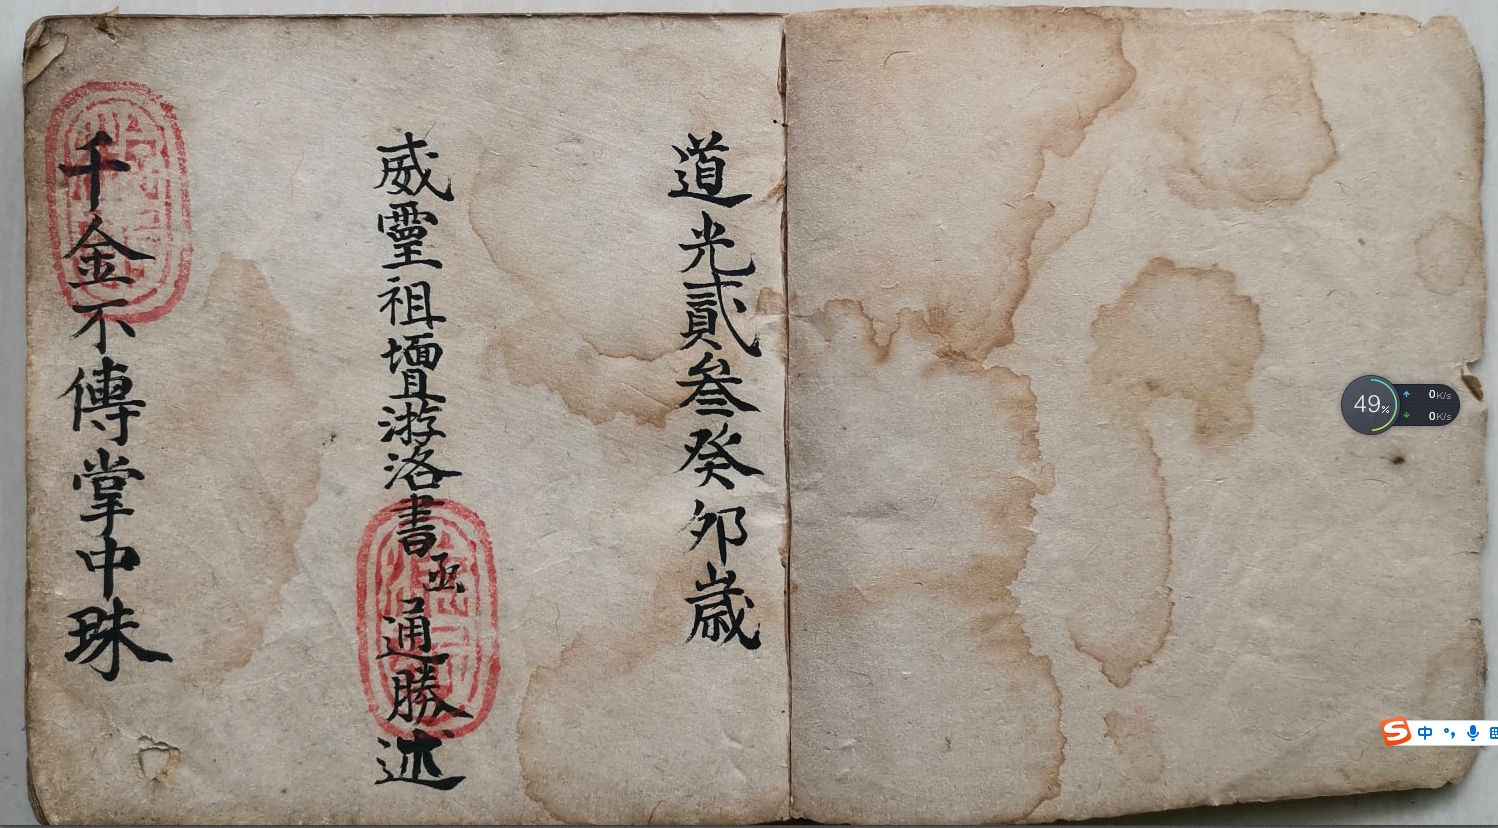 道光貳叁癸卯歲
威靈祖壇游洛書
通勝述
千金不傳掌中珠
49%
0K/s
0K/s
中